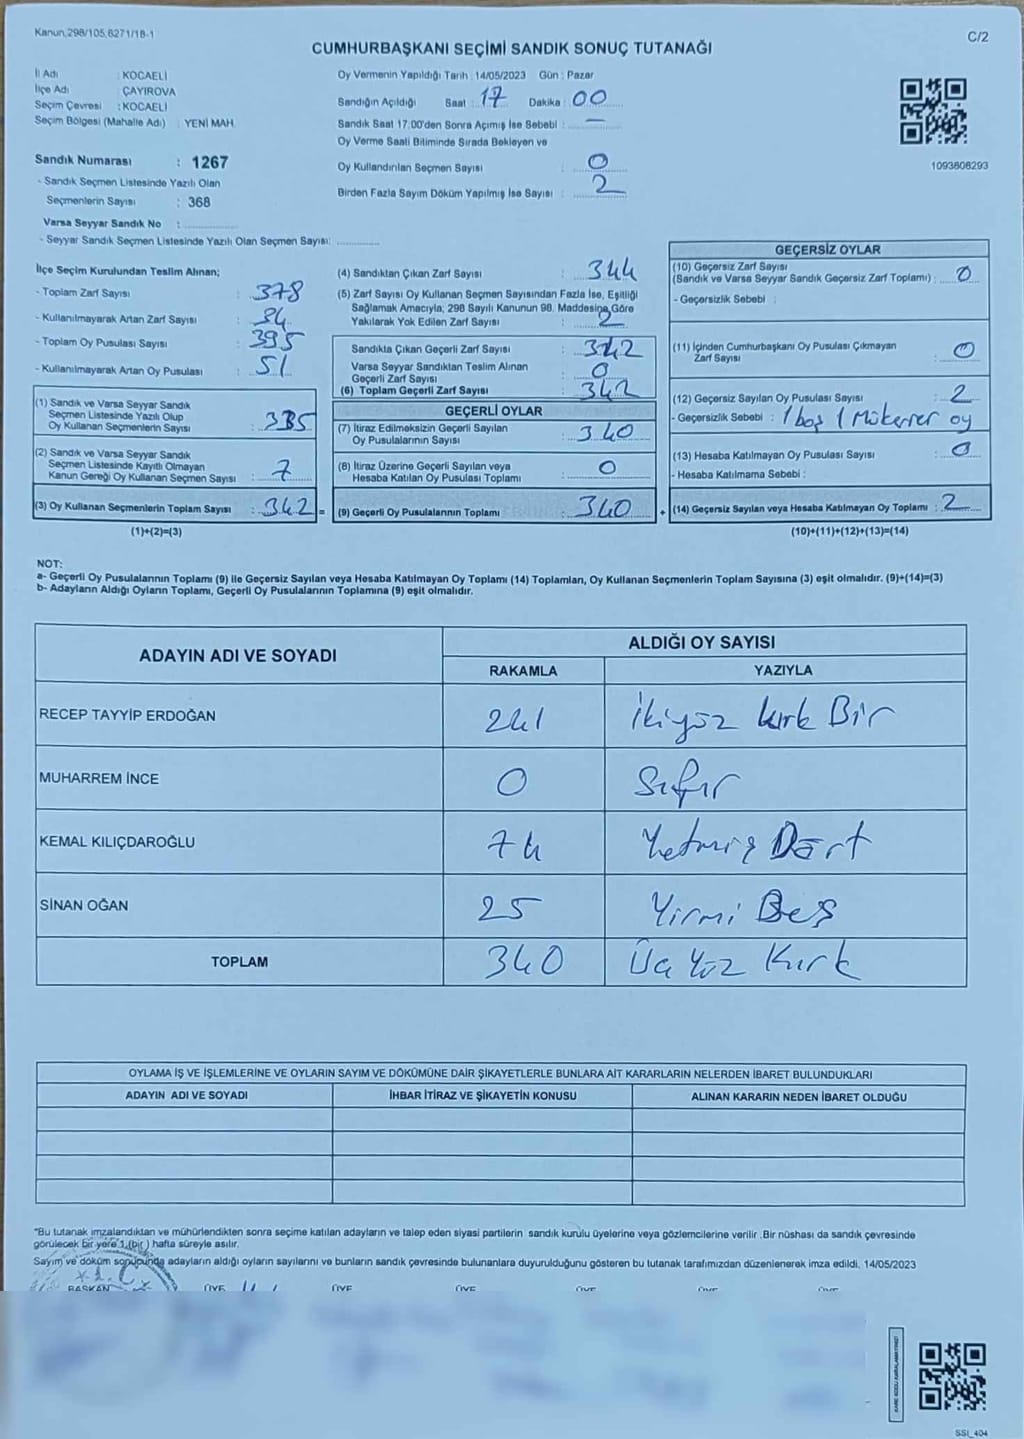 Kanun,298/105,6271/18-1
C/2
CUMHURBAŞKANI SEÇİMİ SANDIK SONUÇ TUTANAĞI
İl Adı : KOCAELİ
İlçe Adı : ÇAYIROVA
Seçim Çevresi : KOCAELİ
Seçim Bölgesi (Mahalle Adı) : YENİ MAH.
Sandık Numarası : 1267
- Sandık Seçmen Listesinde Yazılı Olan
Seçmenlerin Sayısı : 368
Varsa Seyyar Sandık No :
- Seyyar Sandık Seçmen Listesinde Yazılı Olan Seçmen Sayısı:
Oy Vermenin Yapıldığı Tarih : 14/05/2023 Gün : Pazar
Sandığın Açıldığı Saat : 17 Dakika : 00
Sandık Saat 17:00'den Sonra Açımış İse Sebebi : —
Oy Verme Saati Bitiminde Sırada Bekleyen ve
Oy Kullandırılan Seçmen Sayısı : 0
Birden Fazla Sayım Döküm Yapılmış İse Sayısı : 2
1093808293
İlçe Seçim Kurulundan Teslim Alınan;
- Toplam Zarf Sayısı : 378
- Kullanılmayarak Artan Zarf Sayısı : 34
- Toplam Oy Pusulası Sayısı : 395
- Kullanılmayarak Artan Oy Pusulası : 51
(1) Sandık ve Varsa Seyyar Sandık
Seçmen Listesinde Yazılı Olup
Oy Kullanan Seçmenlerin Sayısı : 335
(2) Sandık ve Varsa Seyyar Sandık
Seçmen Listesinde Kayıtlı Olmayan
Kanun Gereği Oy Kullanan Seçmen Sayısı : 7
(3) Oy Kullanan Seçmenlerin Toplam Sayısı : 342 =
(1)+(2)=(3)
(4) Sandıktan Çıkan Zarf Sayısı : 344
(5) Zarf Sayısı Oy Kullanan Seçmen Sayısından Fazla İse, Eşitliği
Sağlamak Amacıyla; 298 Sayılı Kanunun 98. Maddesine Göre
Yakılarak Yok Edilen Zarf Sayısı : 2
Sandıkta Çıkan Geçerli Zarf Sayısı : 342
Varsa Seyyar Sandıktan Teslim Alınan
Geçerli Zarf Sayısı : 0
(6) Toplam Geçerli Zarf Sayısı : 342
GEÇERLİ OYLAR
(7) İtiraz Edilmeksizin Geçerli Sayılan
Oy Pusulalarının Sayısı : 340
(8) İtiraz Üzerine Geçerli Sayılan veya
Hesaba Katılan Oy Pusulası Toplamı : 0
(9) Geçerli Oy Pusulalarının Toplamı : 340 +
GEÇERSİZ OYLAR
(10) Geçersiz Zarf Sayısı
(Sandık ve Varsa Seyyar Sandık Geçersiz Zarf Toplamı) : 0
- Geçersizlik Sebebi :
(11) İçinden Cumhurbaşkanı Oy Pusulası Çıkmayan
Zarf Sayısı : 0
(12) Geçersiz Sayılan Oy Pusulası Sayısı : 2
- Geçersizlik Sebebi : 1 boş 1 Mükerrer oy
(13) Hesaba Katılmayan Oy Pusulası Sayısı : 0
- Hesaba Katılmama Sebebi :
(14) Geçersiz Sayılan veya Hesaba Katılmayan Oy Toplamı : 2
(10)+(11)+(12)+(13)=(14)
NOT:
a- Geçerli Oy Pusulalarının Toplamı (9) ile Geçersiz Sayılan veya Hesaba Katılmayan Oy Toplamı (14) Toplamları, Oy Kullanan Seçmenlerin Toplam Sayısına (3) eşit olmalıdır. (9)+(14)=(3)
b- Adayların Aldığı Oyların Toplamı, Geçerli Oy Pusulalarının Toplamına (9) eşit olmalıdır.
ADAYIN ADI VE SOYADI
ALDIĞI OY SAYISI
RAKAMLA YAZIYLA
RECEP TAYYİP ERDOĞAN 241 İkiyüz Kırk Bir
MUHARREM İNCE 0 Sıfır
KEMAL KILIÇDAROĞLU 74 Yetmiş Dört
SİNAN OĞAN 25 Yirmi Beş
TOPLAM 340 Üç Yüz Kırk
OYLAMA İŞ VE İŞLEMLERİNE VE OYLARIN SAYIM VE DÖKÜMÜNE DAİR ŞİKAYETLERLE BUNLARA AİT KARARLARIN NELERDEN İBARET BULUNDUKLARI
ADAYIN ADI VE SOYADI İHBAR İTİRAZ VE ŞİKAYETİN KONUSU ALINAN KARARIN NEDEN İBARET OLDUĞU
*Bu tutanak imzalandıktan ve mühürlendikten sonra seçime katılan adayların ve talep eden siyasi partilerin sandık kurulu üyelerine veya gözlemcilerine verilir .Bir nüshası da sandık çevresinde
görülecek bir yere 1 (bir ) hafta süreyle asılır.
Sayım ve döküm sonucunda adayların aldığı oyların sayılarını ve bunların sandık çevresinde bulunanlara duyurulduğunu gösteren bu tutanak tarafımızdan düzenlenerek imza edildi. 14/05/2023
BAŞKAN ÜYE ÜYE ÜYE ÜYE ÜYE ÜYE
SSI_404